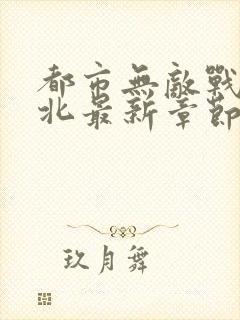 都市無敵戰
北最新章節
玖月舞